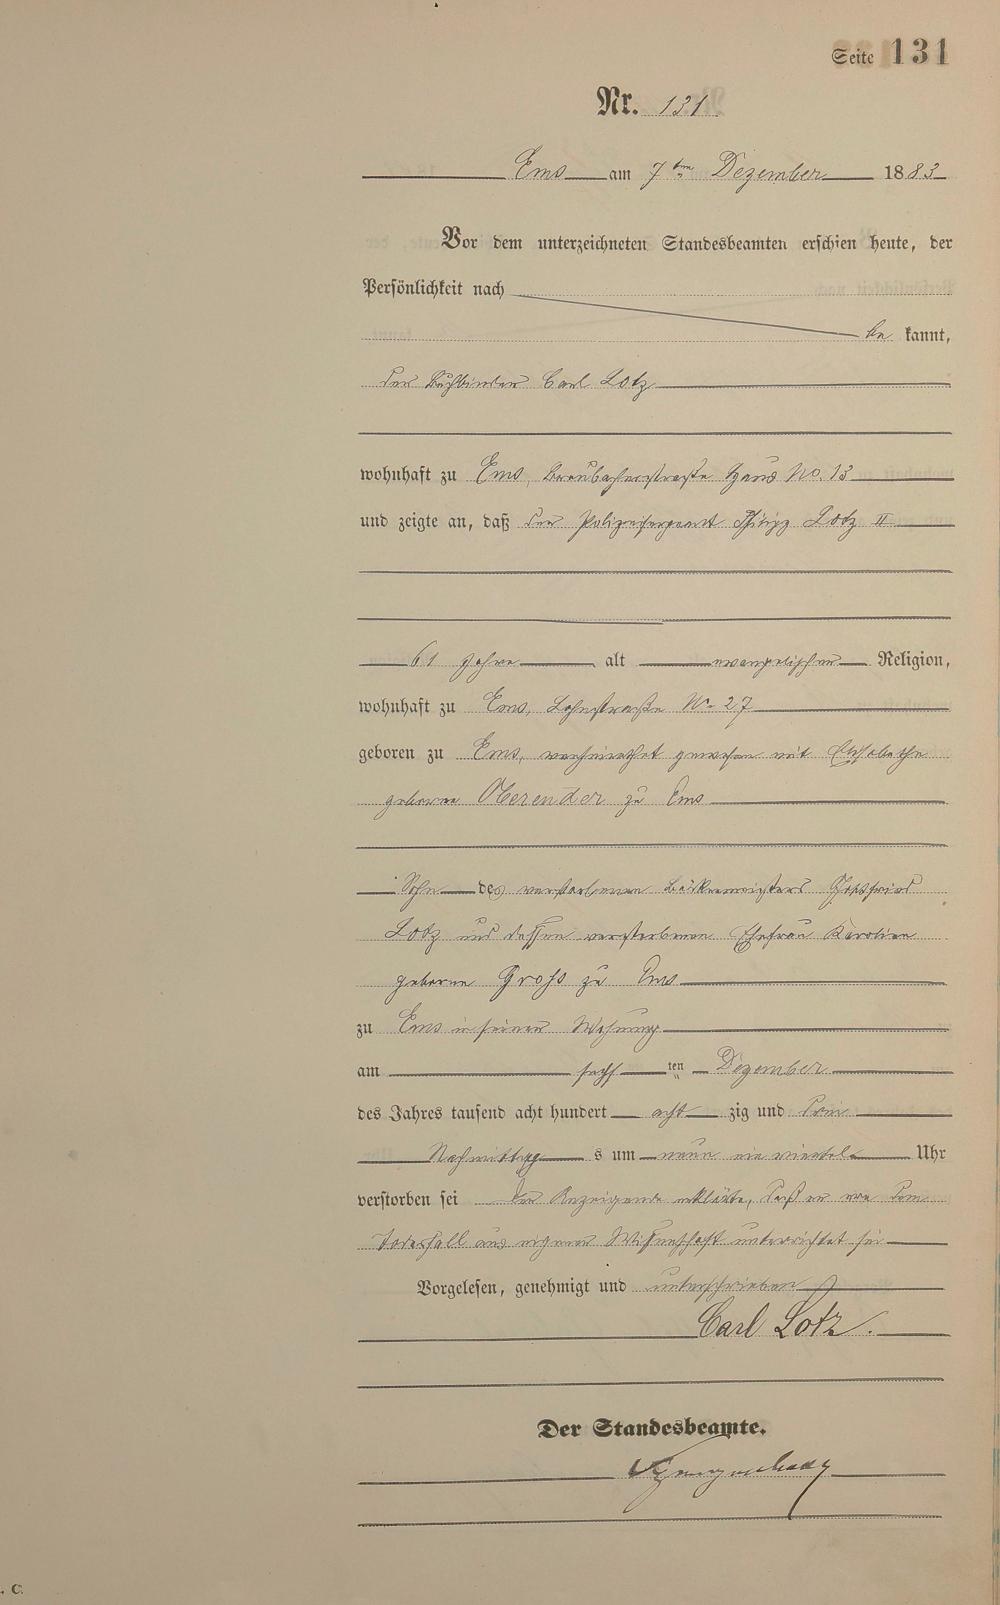 Seite 131
Nr. 131.
Ems am 7ten Dezember 1883
Vor dem unterzeichneten Standesbeamten erschien heute, der
Persönlichkeit nach
be kannt,
der Buchbinder Carl Lotz
wohnhaft zu Ems, Braubacherstraße Haus No. 13
und zeigte an, daß der Polizeisergeant Philipp Lotz II
61 Jahre alt evangelischer Religion,
wohnhaft zu Ems, Lahnstraße No 27
geboren zu Ems, verheirathet gewesen mit Elisabethe
geborne Oberender zu Ems
Sohn des verstorbenen Bäckermeisters Gottfried
Lotz und dessen verstorbenen Ehefrau Karoline
geborne Groß zu Ems
zu Ems in seiner Wohnung
am sechsten Dezember
des Jahres tausend acht hundert acht zig und drei
Nachmittags um neun ein viertel Uhr
verstorben sei Der Anzeigende erklärte, daß er von dem
Todesfall aus eigener Wissenschaft unterrichtet sei
Vorgelesen, genehmigt und unterschrieben
Carl Lotz.
Der Standesbeamte.
C.